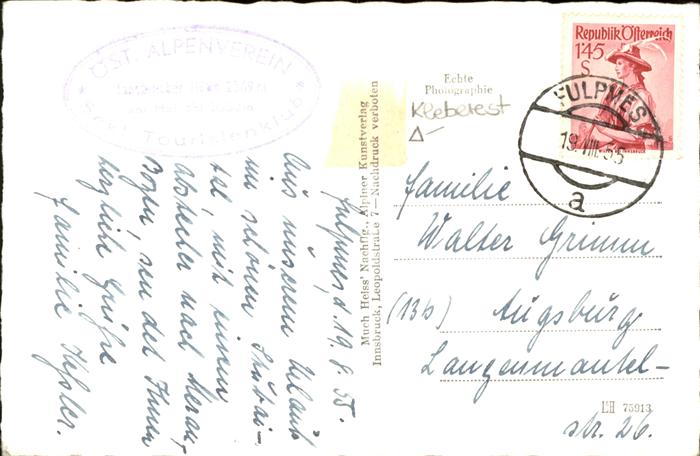 ÖST. ALPENVEREIN
Sekt. Touristenklub
Echte
Photographie
Kleberest
Republik Österreich
1'45
S
FULPMES
19.VIII.55
a
Much Heiss' Nachflg., Alpiner Kunstverlag
Innsbruck, Leopoldstraße 7 — Nachdruck verboten
Fulpmes, d. 19.8.55.
Aus unserem Urlaub
im schönen Stubai-
tal, mit einem
Abstecher nach Meran,
Bozen, sendet Ihnen
herzlich Grüße
Familie Keßler.
Familie
Walter Grimm
(13b) Augsburg
Langenmantel-
str. 26.
75913